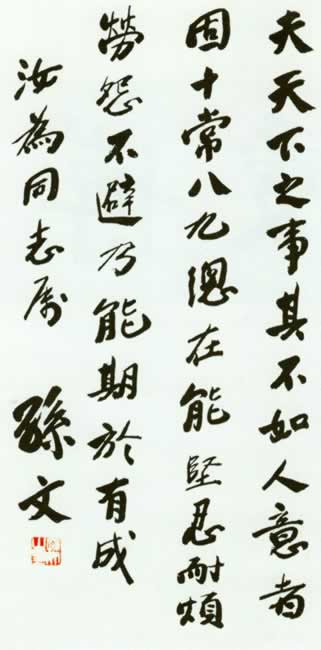 夫天下之事其不如人意者
固十常八九總在能堅忍耐煩
勞怨不避乃能期於有成
汝為同志属
孫文